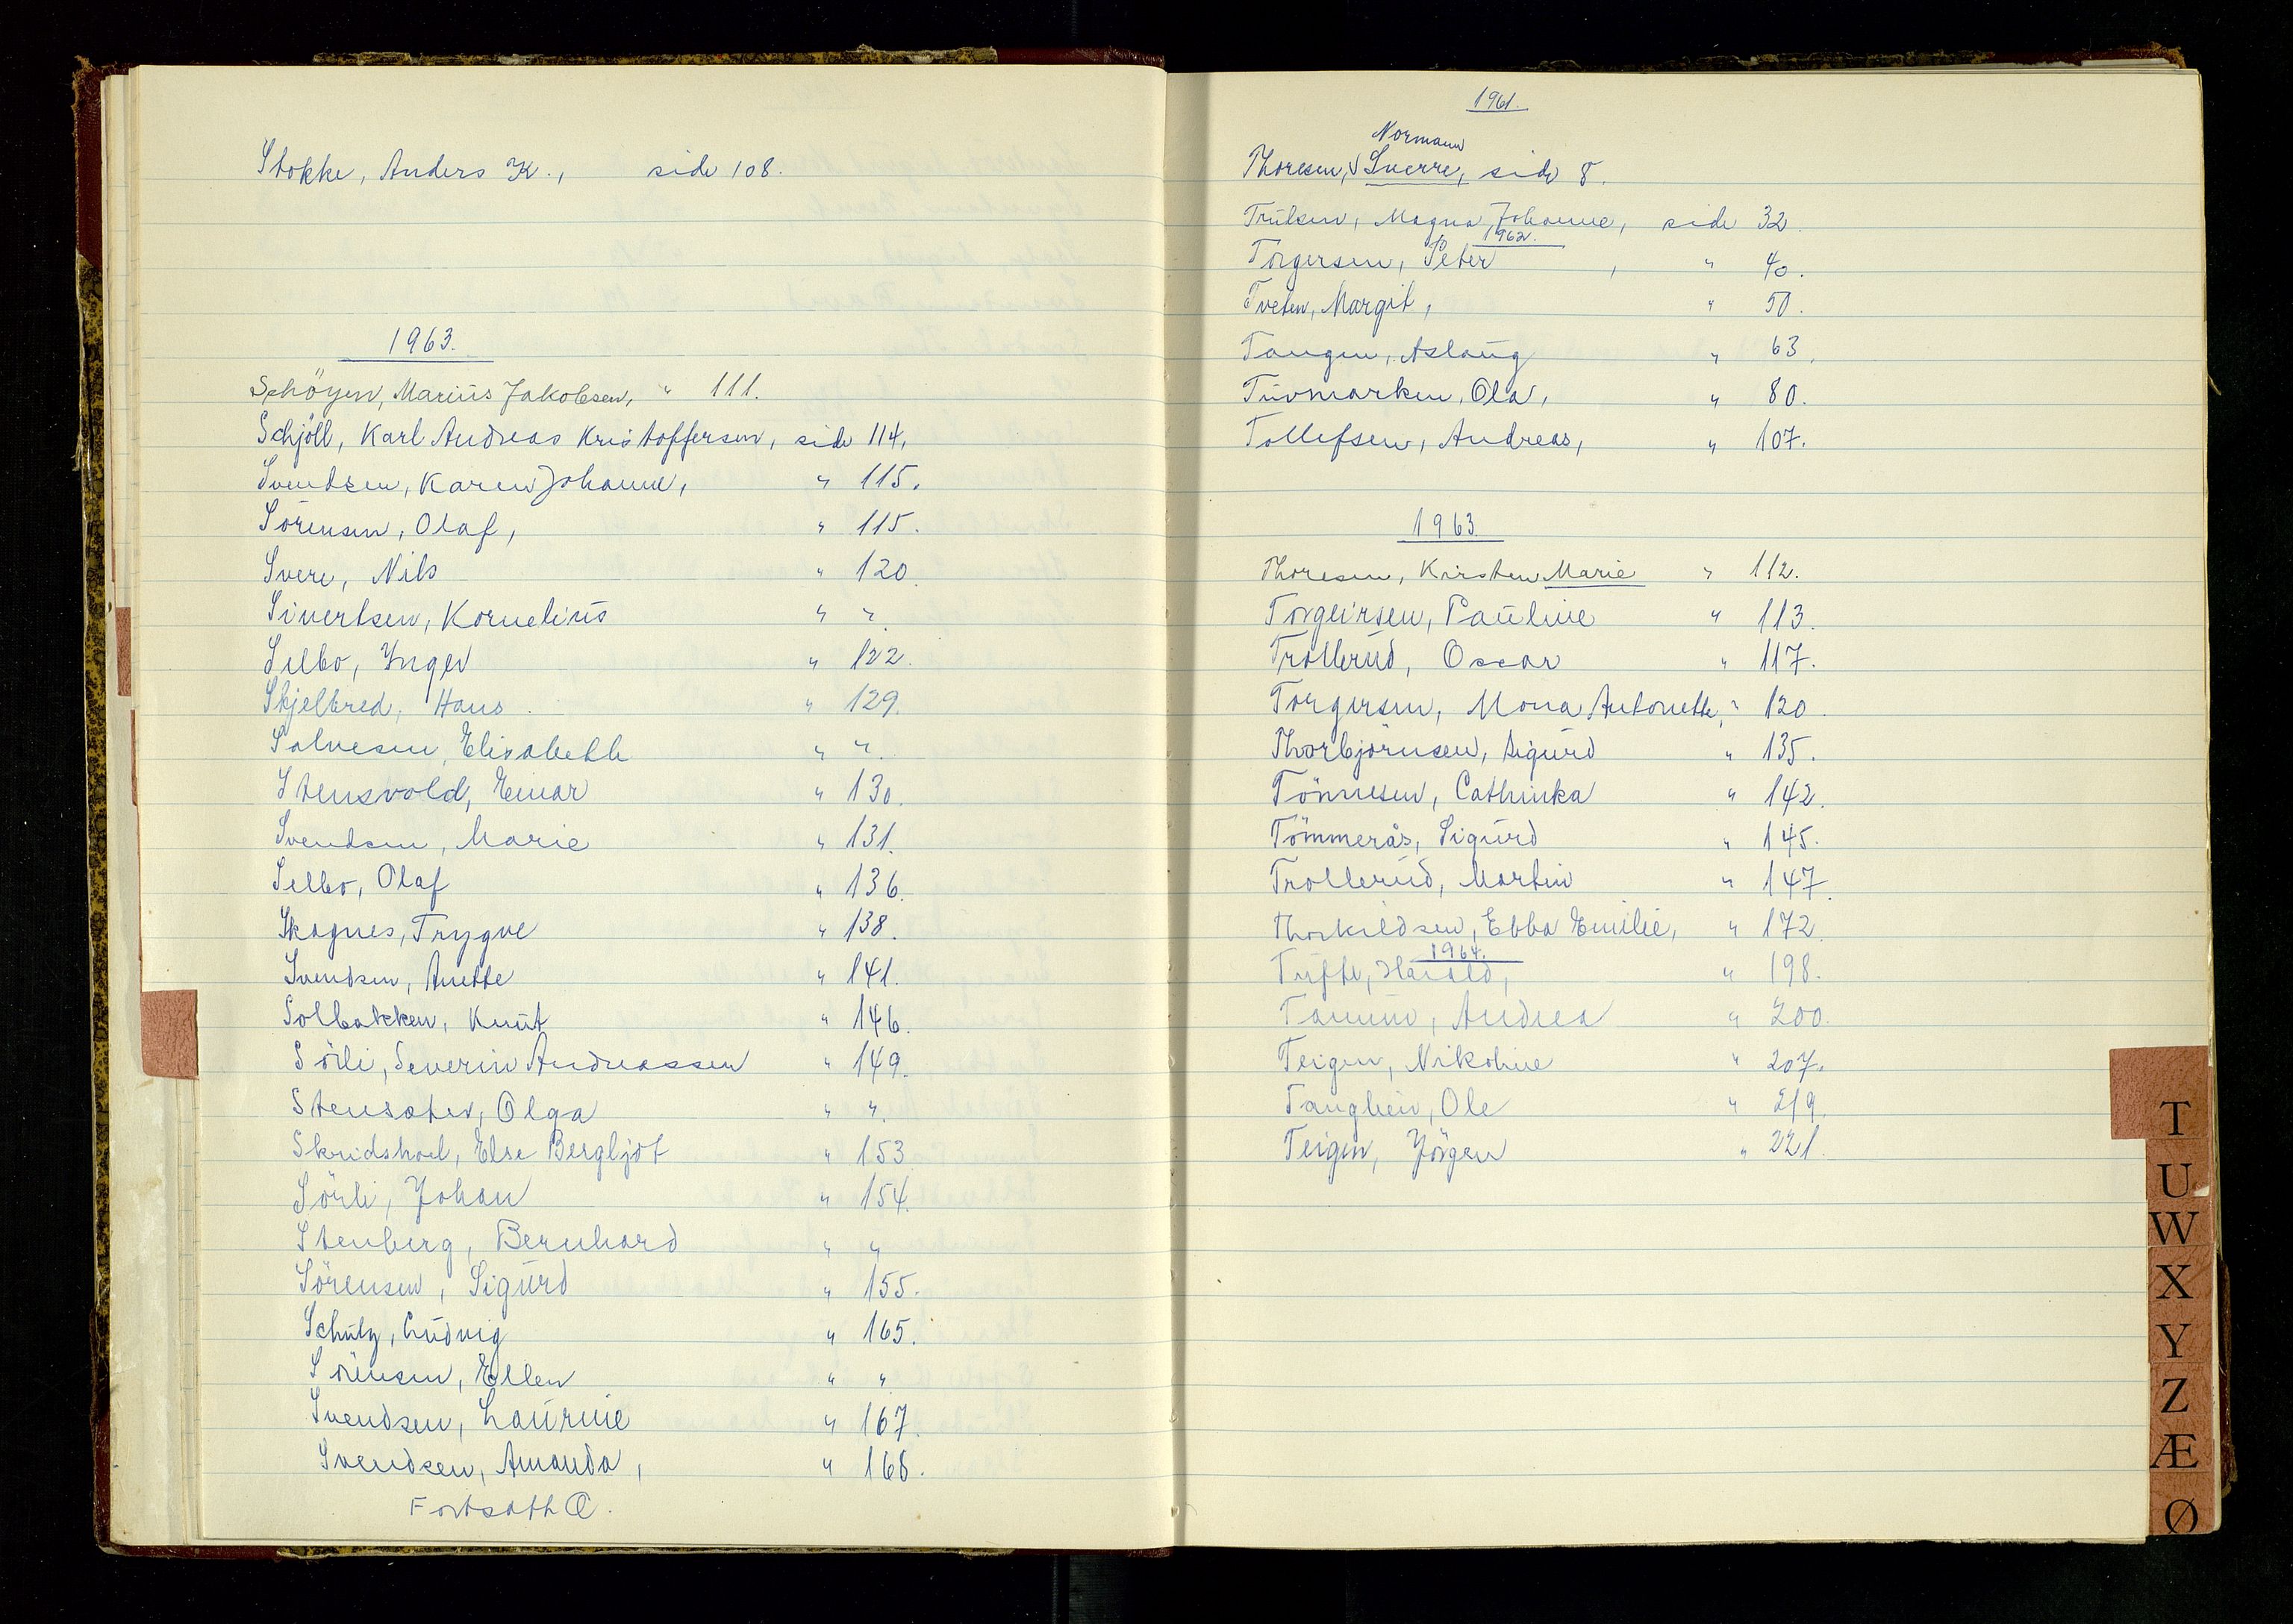 Stokke, Anders K., side 108.
1963.
Schöyen, Marius Jakobsen, " 111.
Schjöll, Karl Andreas Kristoffersen, side 114,
Svendsen, Karen Johanne, " 115.
Sörensen, Olaf, " 115.
Svere, Nils " 120
Sivertsen, Kornelius " "
Selbo, Inger " 122.
Skjelbred, Hans. " 129.
Salvesen, Elisabeth " ".
Stensvold, Einar " 130.
Svendsen, Marie " 131.
Selbo, Olaf " 136.
Skagnes, Trygve " 138.
Svendsen, Anette " 141.
Solbakken, Knut " 146.
Sörli, Severin Andreassen " 149.
Stensæter, Olga " ".
Skridshol, Else Bergljot " 153
Sörli, Johan " 154.
Stenberg, Bernhard " "
Sörensen, Sigurd " 155.
Schulz, Ludvig " 165.
Sörensen, Ellen " "
Svendsen, Laurine " 167.
Svendsen, Amanda, " 168.
Fortsatt Q.
1961.
Normann
Thoresen, V Sverre, side 8.
Trulsen, Magna Johanne, side 32.
1962.
Torgersen, Peter, " 40.
Tveten, Margit, " 50.
Tangen, Aslaug " 63.
Tuvmarken, Ola, " 80.
Tollefsen, Andreas, " 107.
1963
Thoresen, Kirsten Marie " 112.
Torgeirsen, Pauline " 113.
Trollerud, Oscar " 117.
Torgersen, Mona Antonette, " 120.
Thorbjörnsen, Sigurd " 135.
Tönnesen, Cathinka " 142.
Tömmerås, Sigurd " 145.
Trollerud, Martin " 147.
Thorkildsen, Ebba Emilie, " 172.
1964.
Tufte, Harald, " 198.
Andrea " 200.
Teigen, Nikoline " 207.
Tanglein, Ole " 219.
Teigen, Jörgen " 221.
T
U
W
X
Y
Z
Æ
Ø